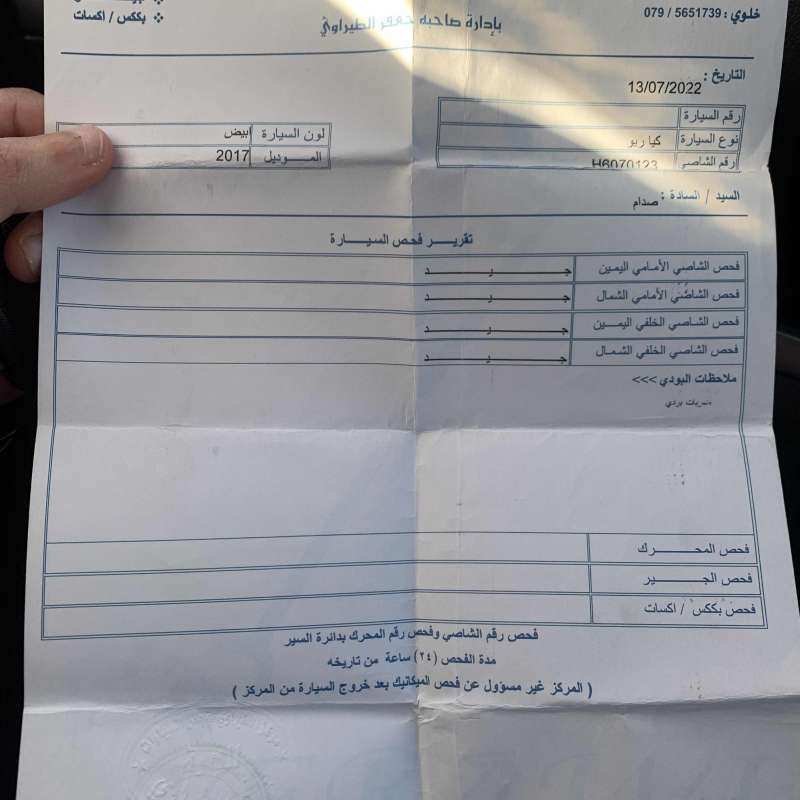 خلوي : 5651739 / 079
❖ بككس / اكسات
بإدارة صاحبه جعفر الطيراوي
التاريخ : 13/07/2022
رقم السيارة
نوع السيارة كيا ريو
رقم الشاصي H6070123
لون السيارة ابيض
الموديل 2017
السيد / السادة : صدام
تقريـــر فحص السيـــارة
فحص الشاصي الأمامي اليمين جـــيـــد
فحص الشاصي الأمامي الشمال جـــيـــد
فحص الشاصي الخلفي اليمين جـــيـــد
فحص الشاصي الخلفي الشمال جـــيـــد
ملاحظات البودي >>>
ضربات بودي
فحص المحـــرك
فحص الجـــير
فحص بككس / اكسات
فحص رقم الشاصي وفحص رقم المحرك بدائرة السير
مدة الفحص (٢٤) ساعة من تاريخه
( المركز غير مسؤول عن فحص الميكانيك بعد خروج السيارة من المركز )